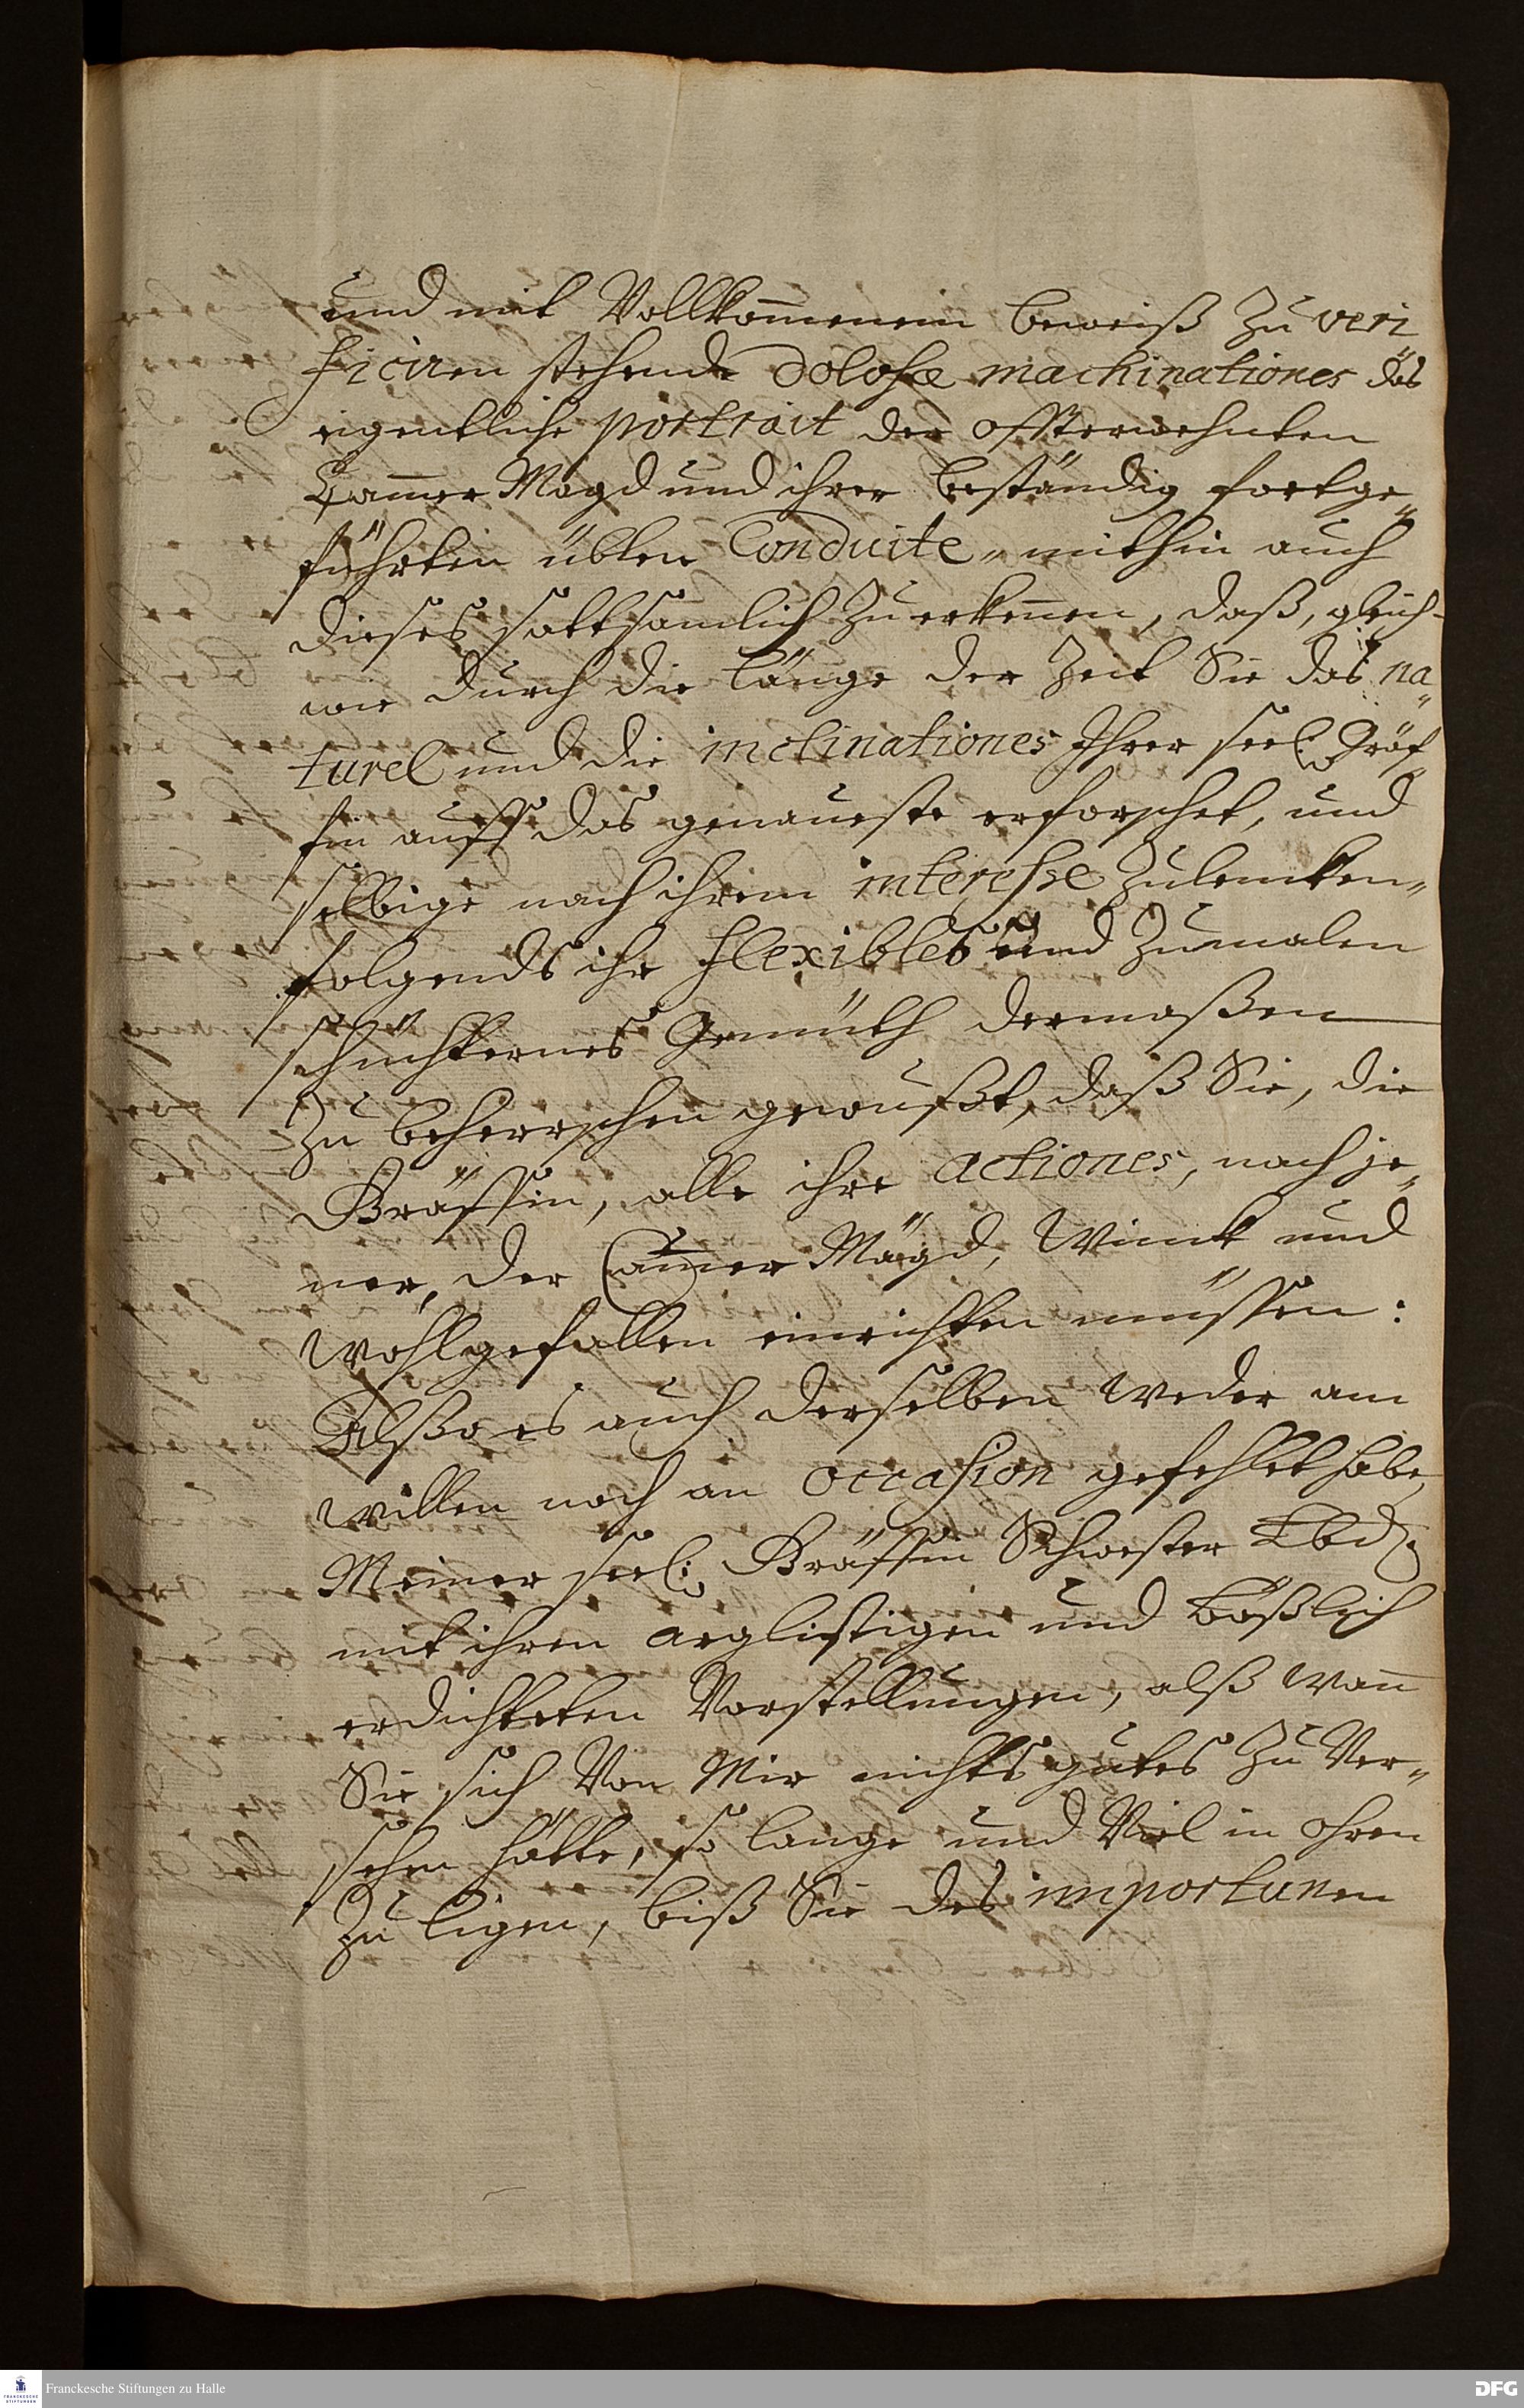 und mit Vollkom̄enem beweiß zu veri„
ficiren stehende dolose machinationes das
eigentliche portrait der offterwehnten
Cam̄er Magd und ihrer beständig fortge„
führten üblen Conduite, mithin auch
dieses sattsamlich zu erkeñen, daß, gleich-
wie durch die länge der Zeit Sie das na„
turel und die inclinationes Ihrer seel. Gräf„
fin auff das genaueste erforschet, und
selbige nach ihrem interesse zulencken„
folgends ihr flexibles und zumalen
schüchternes Gemüth dermaßen
zu beherrschen gewußt, daß Sie, die
Gräffin, alle ihre actiones, nach je„
ner, der Cam̄er Mägd, Winck und
Wohlgefallen einrichten müssen:
Alßo es auch derselben weder am
willen noch an occasion gefehlet habe,
Meiner seel: Gräffin Schwester Lbd.
mit ihren arglistigen und boßlich
erdichteten Vorstellungen, alß wañ
Sie sich Von Mir nichts gutes zu Ver„
sehen hätte, so lange und Viel in ohren
zu ligen, biß Sie des importunen
Franckesche Stiftungen zu Halle
DFG